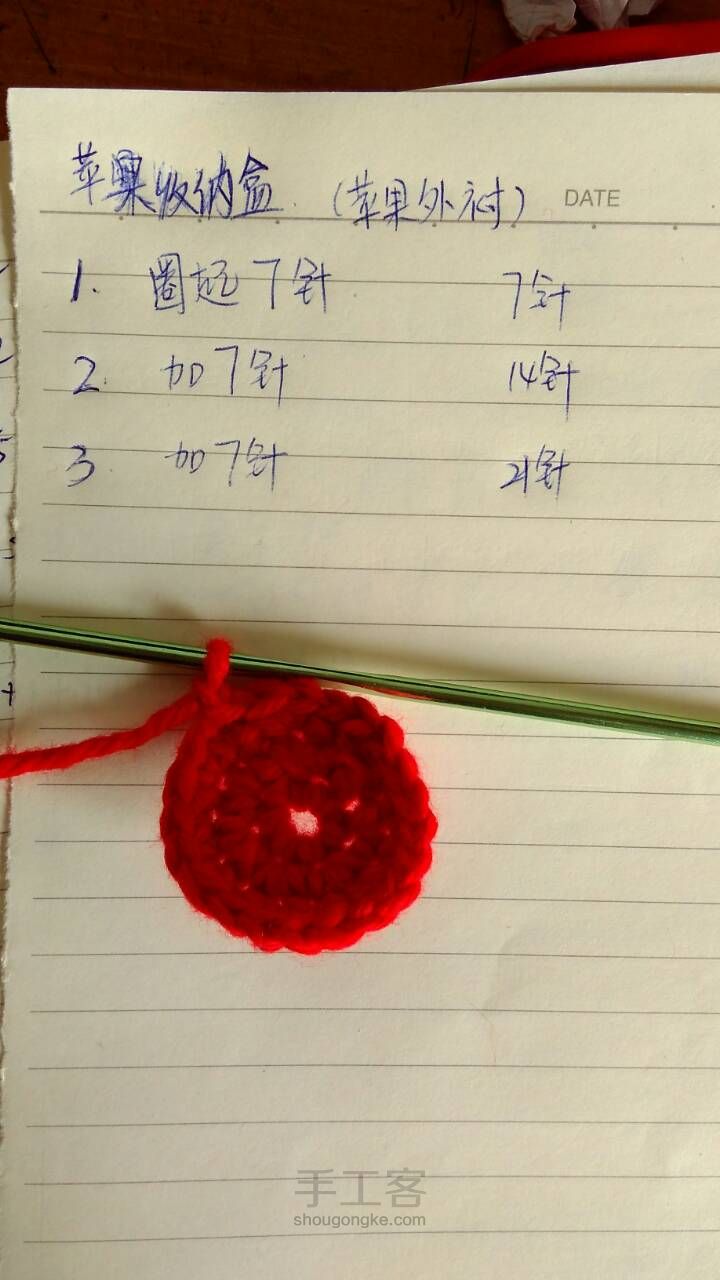 苹果收纳盒 (苹果外衬) DATE
1. 圈起7针 7针
2. 加7针 14针
3 加7针 21针
手工客
shougongke.com